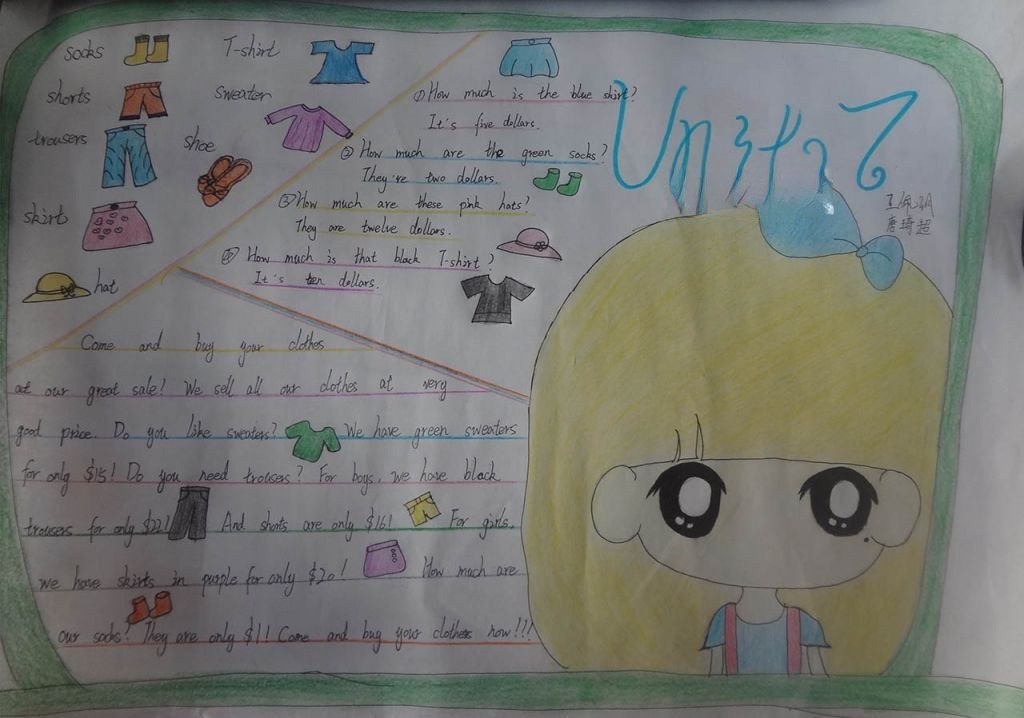 socks
T-shirt
shorts
sweater
trousers
shoe
skirt
hat
① How much is the blue skirt?
It's five dollars.
② How much are the green socks?
They're two dollars.
③ How much are these pink hats?
They are twelve dollars.
④ How much is that black T-shirt?
It's ten dollars.
Unit 7
唐琦超
Come and buy your clothes
at our great sale! We sell all our clothes at very
good price. Do you like sweaters? We have green sweaters
for only $15! Do you need trousers? For boys, we have black
trousers for only $22! And shorts are only $16! For girls,
we have skirts in purple for only $20! How much are
our socks? They are only $1! Come and buy your clothes now!!!